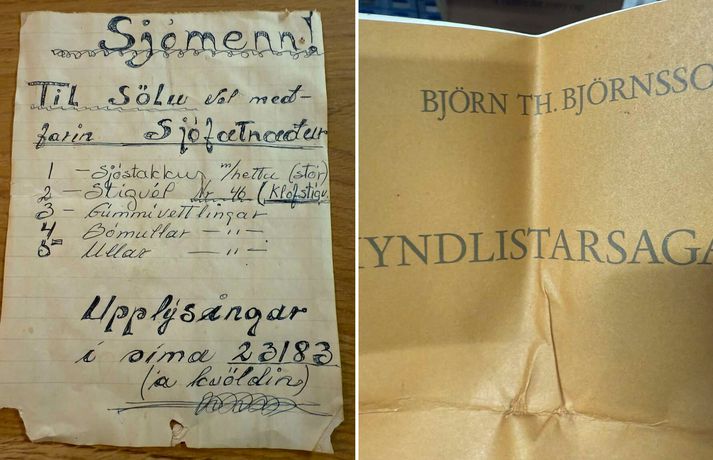 Sjómenn!
Til Sölu vel með-
farin Sjófatnaður
1 - Sjóstakkur m/hettu (stór)
2 - Stígvél Nr 46 (Klofstígv.
3 - Gúmmívettlingar
4 Bómullar — " —
5 Ullar — " —
Upplýsingar
í síma 23183
(á kvöldin)
BJÖRN TH. BJÖRNSSO
YNDLISTARSAGA